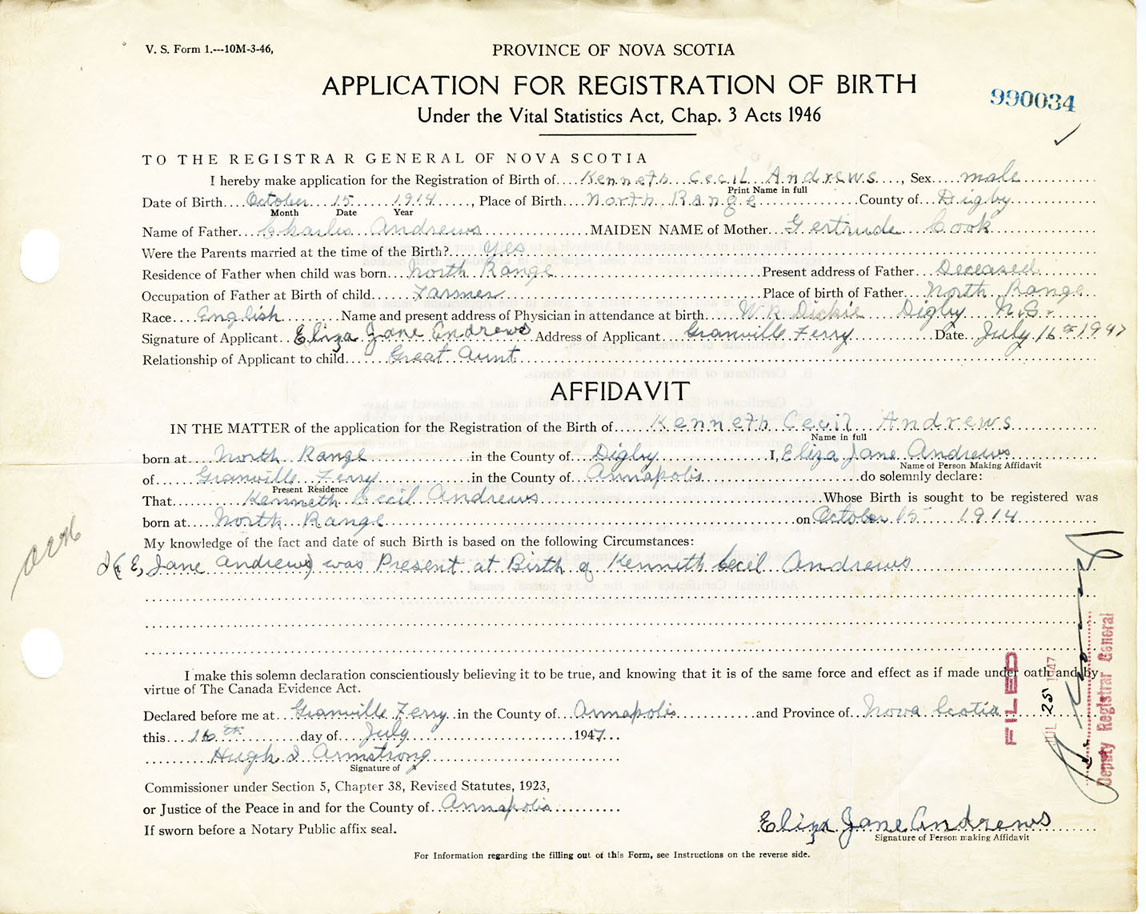 V. S. Form 1.---10M-3-46,
PROVINCE OF NOVA SCOTIA
APPLICATION FOR REGISTRATION OF BIRTH
990034
Under the Vital Statistics Act, Chap. 3 Acts 1946
TO THE REGISTRAR GENERAL OF NOVA SCOTIA
I hereby make application for the Registration of Birth of Kenneth Cecil Andrews, Sex male
Print Name in full
Date of Birth October 15 1914, Place of Birth North Range County of Digby
Month Date Year
Name of Father Charles Andrews MAIDEN NAME of Mother Gertrude Cook
Were the Parents married at the time of the Birth? Yes
Residence of Father when child was born North Range Present address of Father Deceased
Occupation of Father at Birth of child Farmer Place of birth of Father North Range
Race English Name and present address of Physician in attendance at birth W.R. Dickie Digby N.S.
Signature of Applicant Eliza Jane Andrews Address of Applicant Granville Ferry Date July 16th 1947
Relationship of Applicant to child Great Aunt
AFFIDAVIT
IN THE MATTER of the application for the Registration of the Birth of Kenneth Cecil Andrews
Name in full
born at North Range in the County of Digby I, Eliza Jane Andrews
Name of Person Making Affidavit
of Granville Ferry in the County of Annapolis do solemnly declare:
Present Residence
That Kenneth Cecil Andrews Whose Birth is sought to be registered was
born at North Range on October 15 1914
My knowledge of the fact and date of such Birth is based on the following Circumstances:
I (E, Jane Andrews) was Present at Birth of Kenneth Cecil Andrews
I make this solemn declaration conscientiously believing it to be true, and knowing that it is of the same force and effect as if made under oath and by
virtue of The Canada Evidence Act.
Declared before me at Granville Ferry in the County of Annapolis and Province of Nova Scotia
this 16th day of July 1947
Hugh I Armstrong
Signature of
Commissioner under Section 5, Chapter 38, Revised Statutes, 1923,
or Justice of the Peace in and for the County of Annapolis
If sworn before a Notary Public affix seal.
Eliza Jane Andrews
Signature of Person making Affidavit
For Information regarding the filling out of this Form, see Instructions on the reverse side.
FILED
JUL 25 1947
Deputy Registrar General